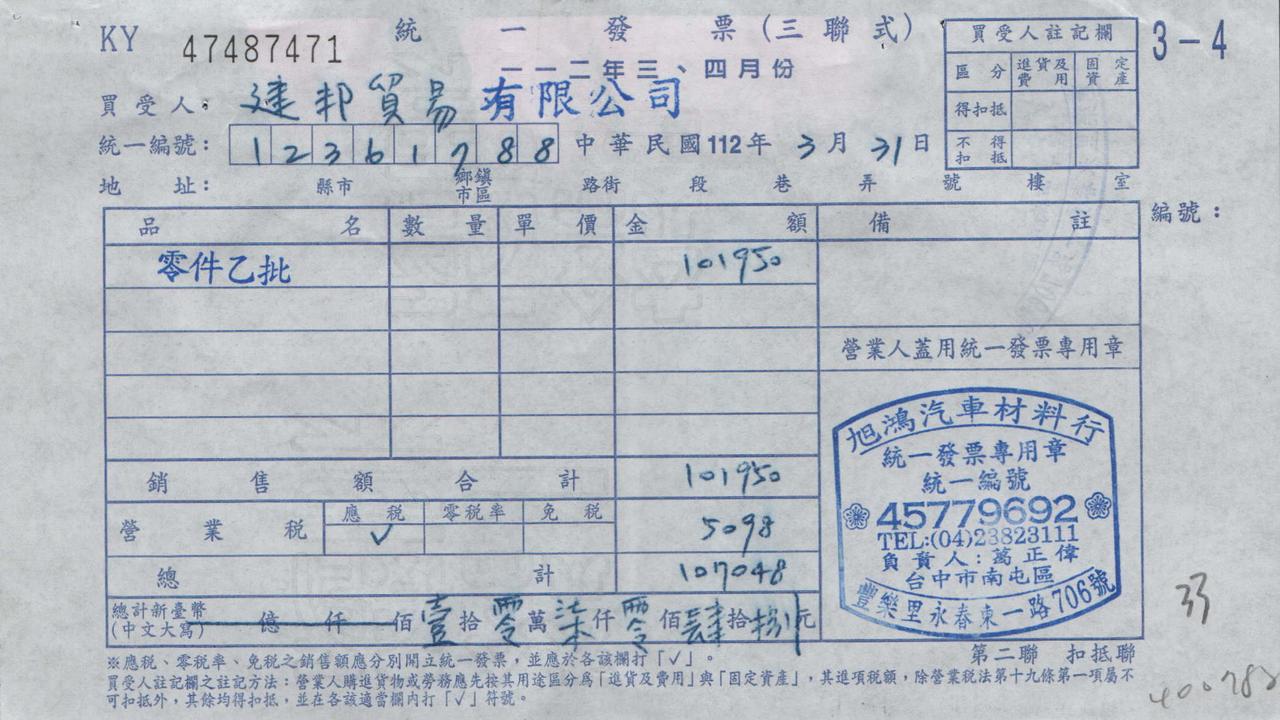 KY 47487471 統一發票(三聯式) 3-4
一一二年三、四月份
買受人: 建邦貿易有限公司
統一編號: 12361788 中華民國112年3月31日
地址: 縣市 鄉鎮市區 路街 段 巷 弄 號 樓 室
買受人註記欄
區分 進貨及費用 固定資產
得扣抵
不得扣抵
編號:
品名 數量 單價 金額 備註
零件乙批 101950
營業人蓋用統一發票專用章
銷售額合計 101950
營業稅 應稅 零稅率 免稅 5098
✓
總計 107048
總計新臺幣(中文大寫) 億 仟 佰 壹拾零萬柒仟零佰肆拾捌元
旭鴻汽車材料行
統一發票專用章
統一編號
45779692
TEL:(04)23823111
負責人:萬正偉
台中市南屯區
豐樂里永春東一路706號
33
第二聯 扣抵聯
※應稅、零稅率、免稅之銷售額應分別開立統一發票,並應於各該欄打「✓」。
買受人註記欄之註記方法:營業人購進貨物或勞務應先按其用途區分為「進貨及費用」與「固定資產」,其進項稅額,除營業稅法第十九條第一項屬不
可扣抵外,其餘均得扣抵,並在各該適當欄內打「✓」符號。